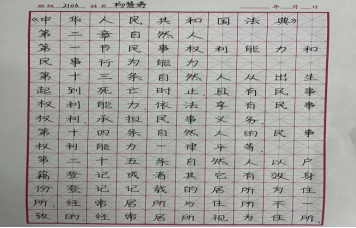 班级 2104 姓名
年 月 日
《中华人民共和国法典》
第二章自然人
第一节民事权利能力和
民事行为能力
第十三条自然人从出生
起到死亡时止,具有民事
权利能力,依法享有民事
权利,承担民事义务。
第十四条自然人的民事
权利能力一律平等。
第二十五条自然人以户
籍登记或者其它有效身
份登记记载的居所为住
所,经常居所与住所不一
致的,经常居所视为住所。